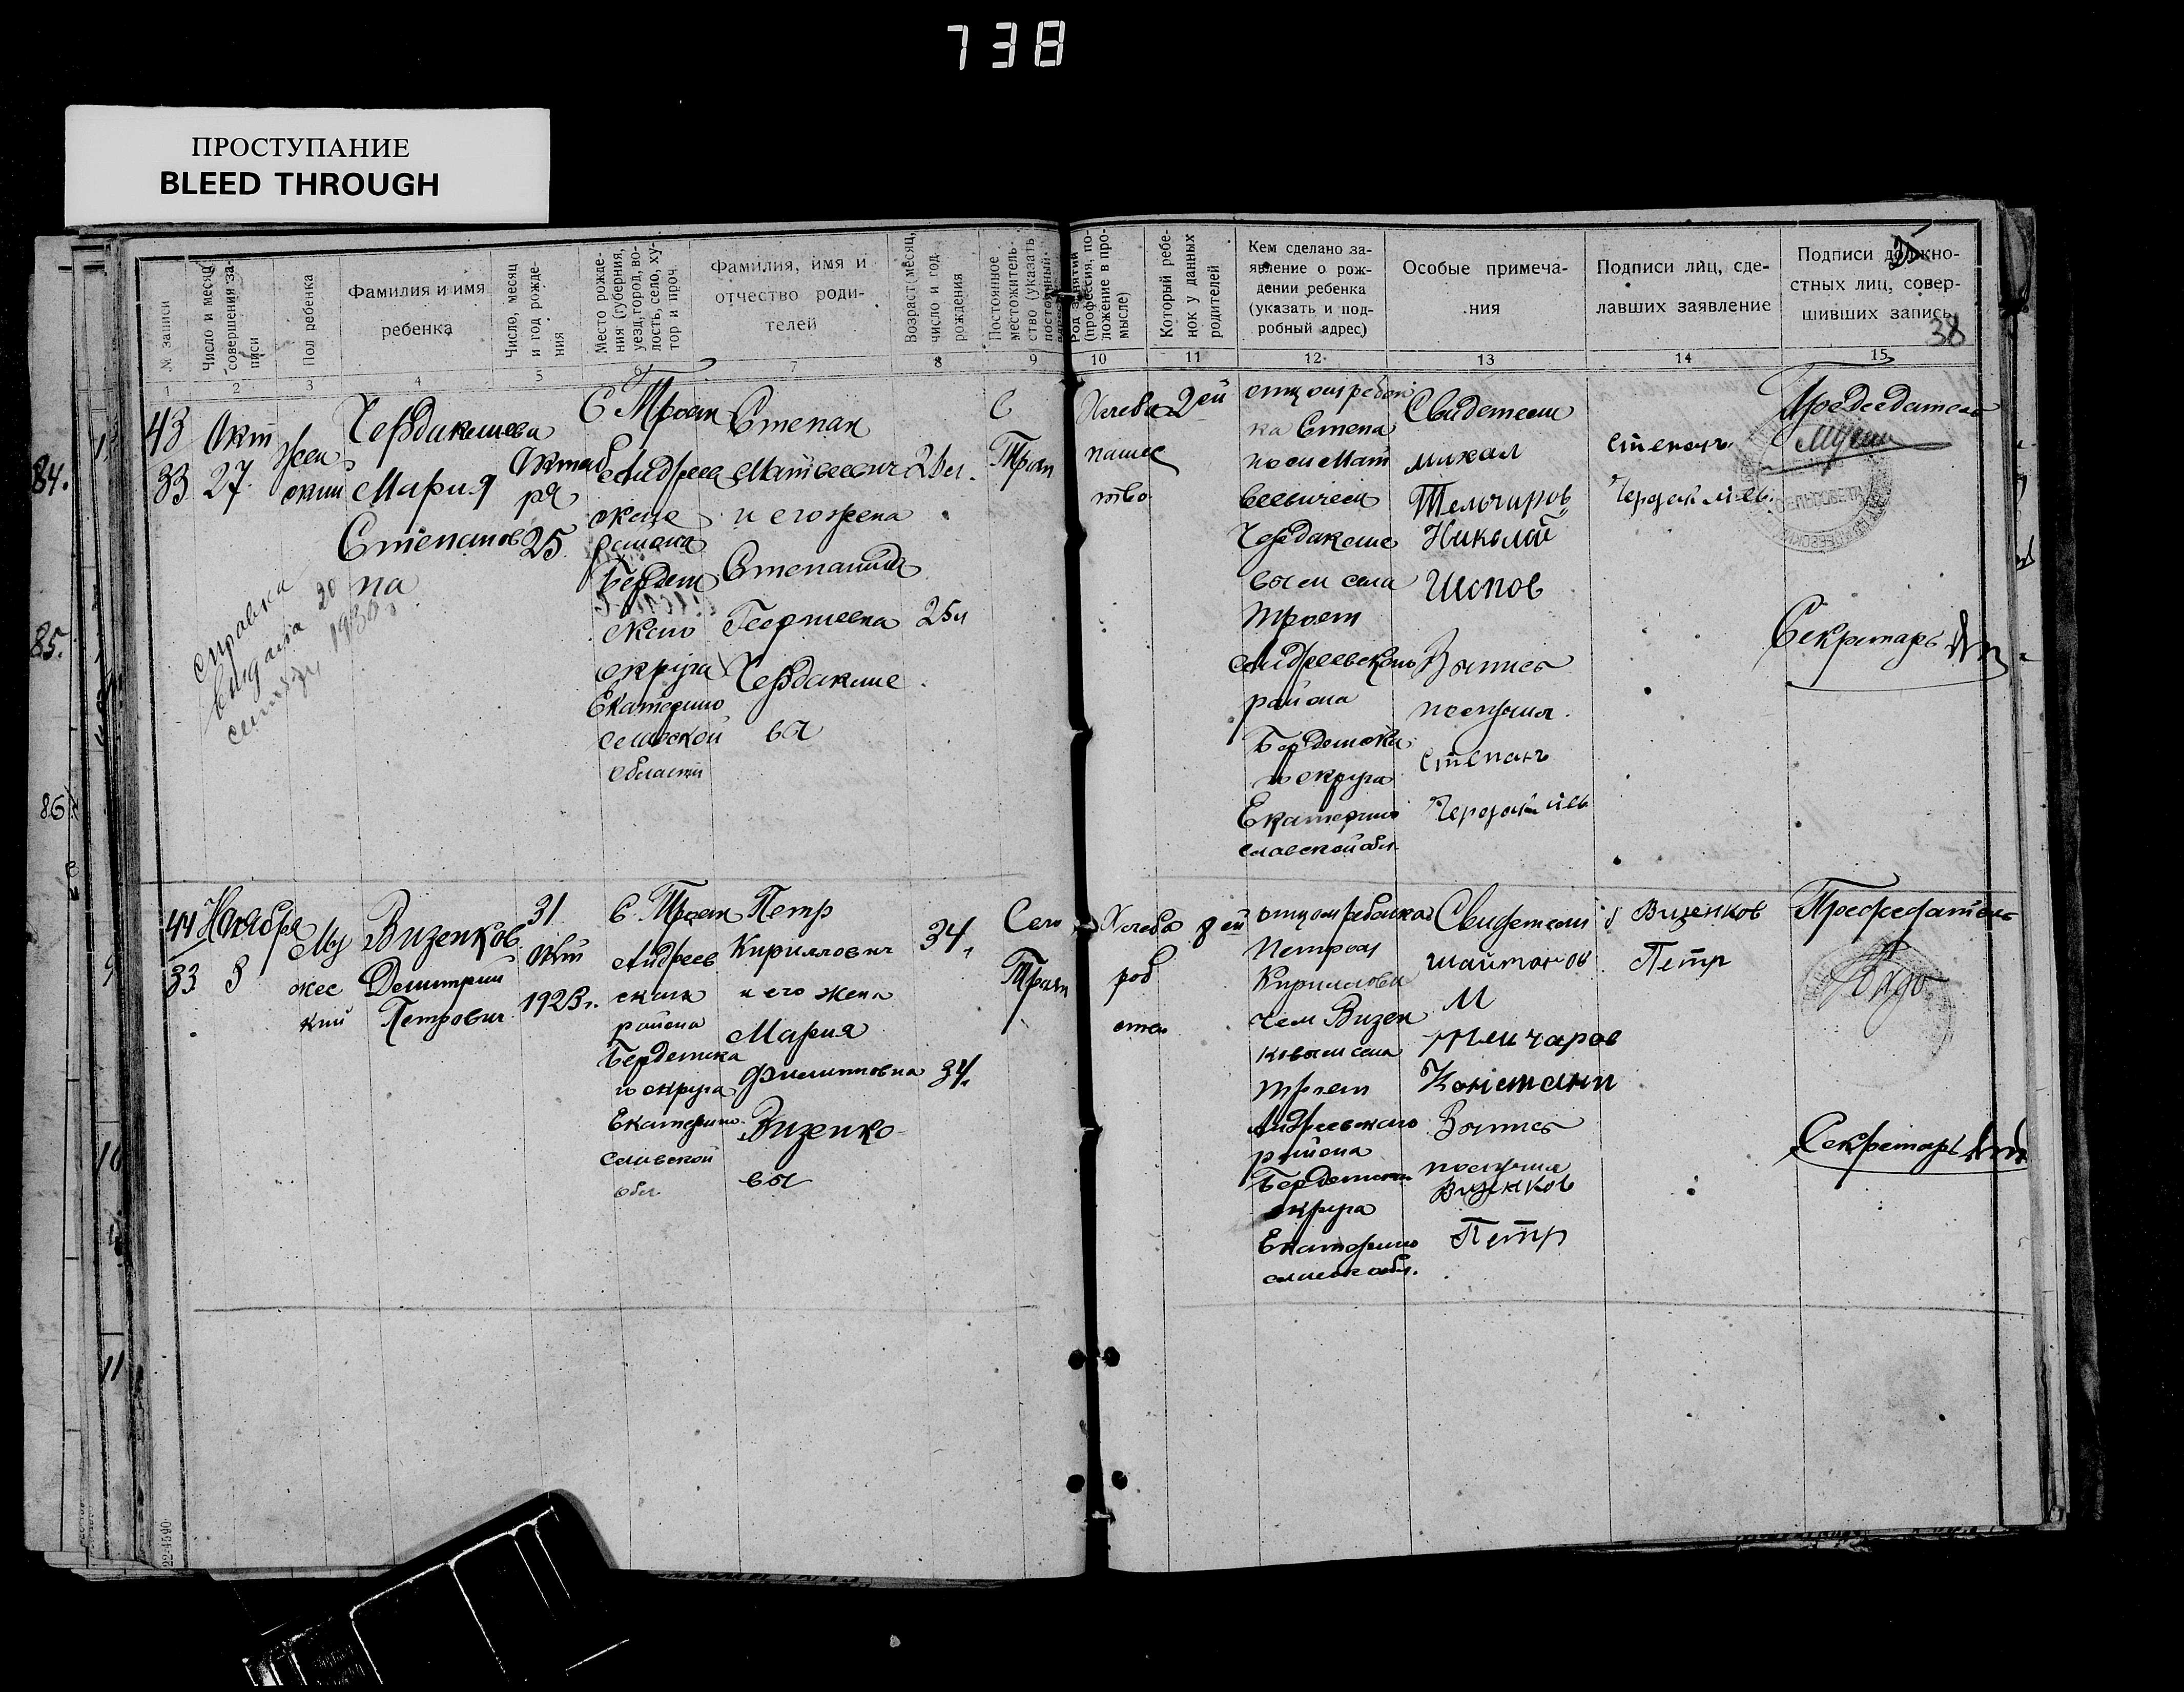 738
ПРОСТУПАНИЕ
BLEED THROUGH
№ записи
Число и месяц
совершения за-
писи
Пол ребенка
Фамилия и имя
ребенка
Число, месяц
и год рожде-
ния
Место рожде-
ния (губерния,
уезд, город, во-
лость, село, ху-
тор и проч.
Фамилия, имя и
отчество роди-
телей
Возраст (месяц,
число и год
рождения
Постоянное
местожитель-
ство (указать
постоянный
Род занятий
(профессия, по-
ложение в про-
мысле)
Который ребе-
нок у данных
родителей
Кем сделано за-
явление о рож-
дении ребенка
(указать и под-
робный адрес)
Особые примеча-
ния
Подписи лиц, сде-
лавших заявление
Подписи должно-
стных лиц, совер-
шивших запись
38
1 2 3 4 5 6 7 8 9 10 11 12 13 14 15
84.
85.
86
43
33
Окт
27.
Жен
ский
Чердаклиева
Мария
Степанов
на
Октяб
ря
25
С Троян
Андреев
ского
района
Бердян
ского
округа
Екатерино
славской
области
Степан
Матвеевич
и его жена
Степанида
Георгиевна
Чердаклие
вы
25 л
С
Троян
Хлебо
пашес
тво
2 ей
отцом ребен
ка Степа
ном Мат
веевичем
Чердаклие
вым села
Троян
Андреевского
района
Бердянска
го округа
Екатерино
славской обл.
Свидетели
михал
Тельчаров
Николай
Шопов
Выпись
получил
Степанъ
Степанъ
Председатель
Секретарь
справка
выдана 20
1938 г
44
33
Ноября
3
Му
жес
кий
Визенков
Димитрий
Петрович
31
Окт
1923 г.
С Троян
Андреев
ского
района
Бердянска
го округа
Екатерино
славской
обл
Петр
Кириллович
и его жена
Мария
Филипповна
Визенко
вы
34.
34.
Село
Троян
Хлебо
роб
ство
8 ей
отцом ребенка
Петром
Кириллови
чем Визен
ковым села
Троян
Андреевского
района
Бердянского
округа
Екатерино
славск обл.
Свидетели
шайтанов
М
Тельчаров
Констант
Выпись
получил
Визенков
Петр
Визенков
Петр
Председатель
Секретарь
22-4590